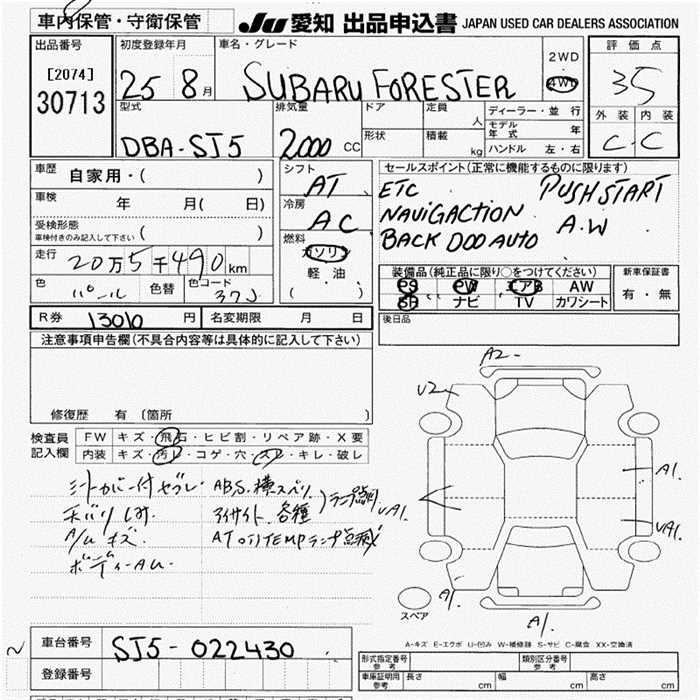 車内保管・守衛保管 JU 愛知 出品申込書 JAPAN USED CAR DEALERS ASSOCIATION
出品番号 初度登録年月 車名・グレード 評価点
[2074] 2WD
30713 25 8月 SUBARU FORESTER 4WD 35
型式 排気量 ドア 定員 人 ディーラー・並行 外装 内装
DBA-SJ5 2000 CC 形状 積載 kg モデル年式 年 C C
ハンドル 左・右
車歴 自家用・( ) シフト AT セールスポイント(正常に機能するものに限ります)
車検 年 月( 日) 冷房 AC ETC PUSHSTART
受検形態 NAViGACTION A.W
車検付きのみ記入して下さい ( ) 燃料 ガソリン BACK DOO AUTO
走行 20万5千490km 軽油 装備品(純正品に限り○をつけてください) 新車保証書
色 パール 色替 色コード 37J ( ) PS PW エアB AW 有・無
SR ナビ TV カワシート
R券 13010円 名変期限 月 日 後日品
注意事項申告欄(不具合内容等は具体的に記入して下さい)
A2-
V2
修復歴 有 (箇所 )
検査員 FW キズ・飛石・ヒビ割・リペア跡・X要
記入欄 内装 キズ・汚レ・コゲ・穴・スレ・キレ・破レ
A1
シートカバー付 ABS.横スベリ
アイサイト.各種 ランプ点灯 UA1.
UA1.
A/W キズ ATOILTEMPランプ点滅
ボディー
スペア A1.
A1.
A-キズ E-エクボ U-凹み W-補修跡 S-サビ C-腐食 XX-交換済
車台番号 SJ5-022430
登録番号
形式指定番号 参考 類別区分番号 参考
車庫証明用 参考 長さ cm 幅 cm 高さ cm